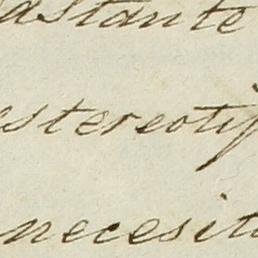 astante
estereotip
necesit